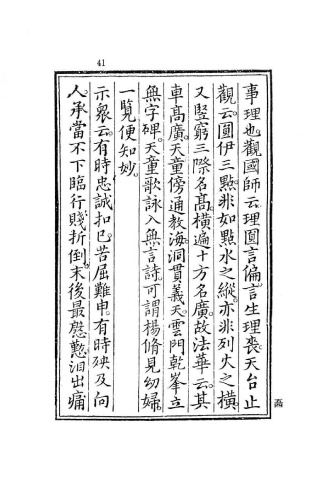 41
事理也觀國師云理圓言偏言生理喪天台止
觀云圓伊三點非如點水之縱亦非列火之橫
又竪窮三際名高橫遍十方名廣故法華云其
車高廣天童傍通教海洞貫義天雲門乾峯立
無字碑天童歌詠入無言詩可謂楊脩見幼婦
一覽便知妙
示衆云有時忠誠扣己苦屈難申有時殃及向
人承當不下臨行賤折倒末後最慇懃泪出痛